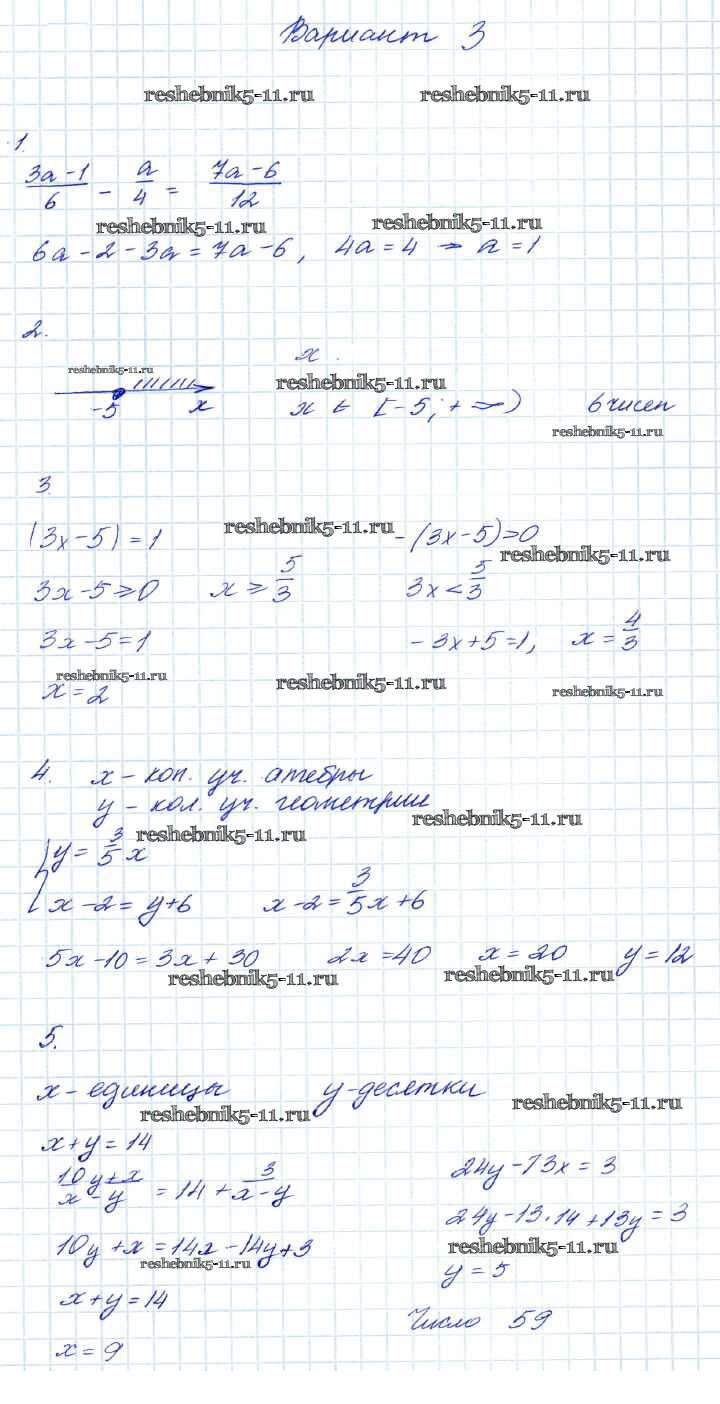 Вариант 3
reshebnik5-11.ru reshebnik5-11.ru
1.
(3a-1)/6 - a/4 = (7a-6)/12
reshebnik5-11.ru reshebnik5-11.ru
6a-2-3a=7a-6, 4a=4 → a=1
2.
reshebnik5-11.ru x.
reshebnik5-11.ru
-5 x x ∈ [-5; +∞) 6 чисел
reshebnik5-11.ru
3.
|3x-5|=1 reshebnik5-11.ru -(3x-5)>0
reshebnik5-11.ru
3x-5≥0 x≥5/3 3x<5/3
3x-5=1 -3x+5=1, x=4/3
reshebnik5-11.ru reshebnik5-11.ru reshebnik5-11.ru
x=2
4. x - кол. уч. алгебры
y - кол. уч. геометрии
reshebnik5-11.ru reshebnik5-11.ru
{ y=3/5x
x-2=y+6 x-2=3/5x+6
5x-10=3x+30 2x=40 x=20 y=12
reshebnik5-11.ru reshebnik5-11.ru
5.
x - единицы y-десятки
reshebnik5-11.ru reshebnik5-11.ru
x+y=14
(10y+x)/(x-y) = 14 + 3/(x-y) 24y-13x=3
24y-13·14+13y=3
10y+x=14x-14y+3 reshebnik5-11.ru
reshebnik5-11.ru y=5
x+y=14
Число 59
x=9